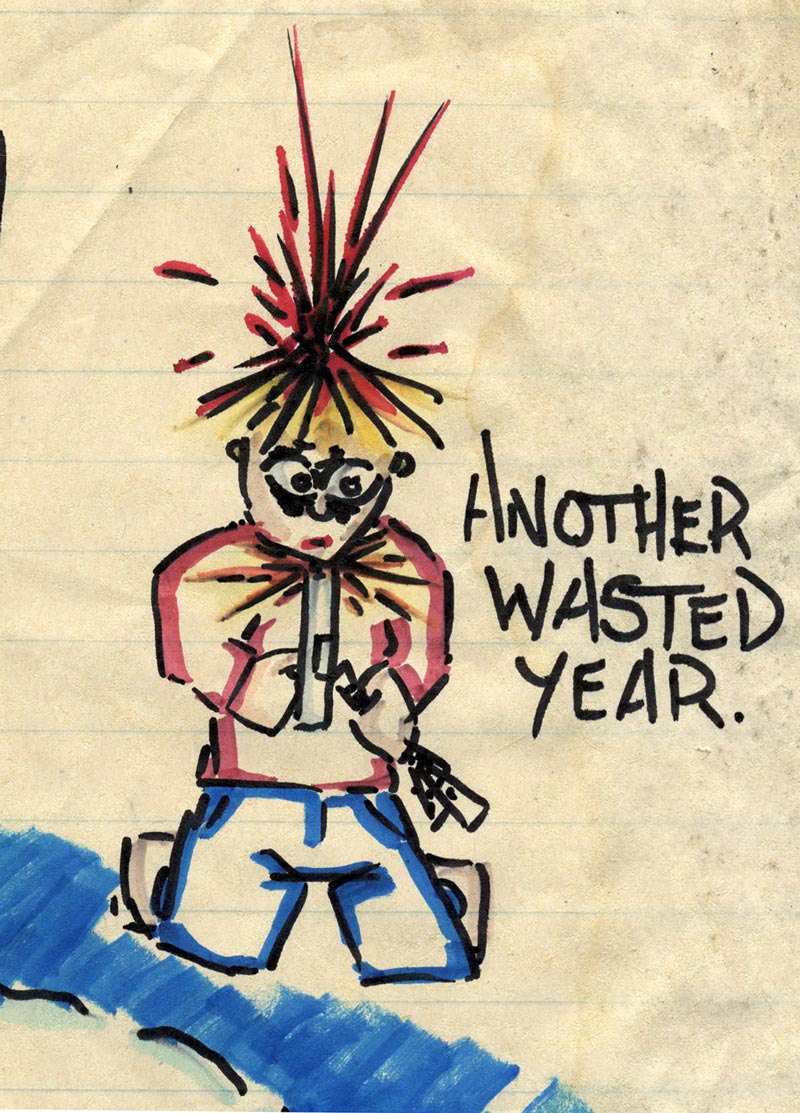 ANOTHER
WASTED
YEAR.